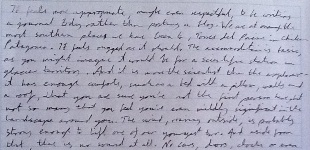 It feels more appropriate, maybe even respectful, to be writing
a journal today rather than posting a blog. We are at among the
most southern places we have been to, Torres del Paine in Chilean
Patagonia. It feels rugged as it should. The accommodation is basic,
as you might imagine it would be for a scientific station in
glacier territory. And it is more the scientist than the explorer
it has enough comforts, such as a bed with a pillow, walls and
a roof, that you are sure you're not the first person here but
not so many that you feel you're even mildly significant in the
landscape around you. The wind, roaring outside, is probably
strong enough to lift one of our youngest two. And aside from
that, there is no sound at all. No cars, doors, clocks or even